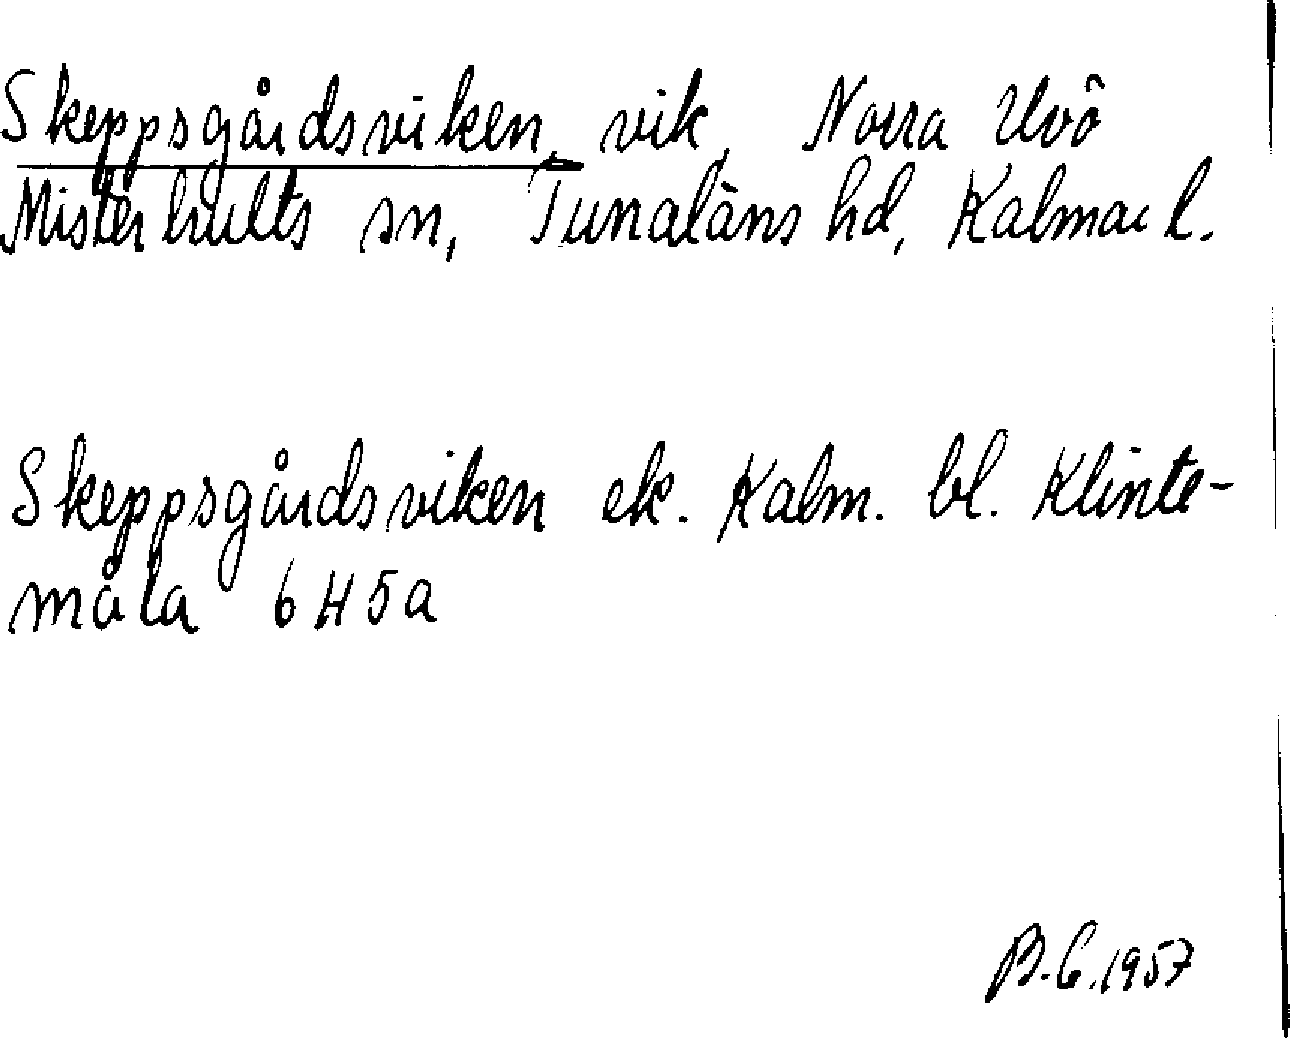 Skeppsgårdsviken, vik, Norra Uvö
Misterhults sn, Tunaläns hd, Kalmar l.
Skeppsgårdsviken ek. Kalm. bl. Klinte-
måla 6H5a
B.G.1957